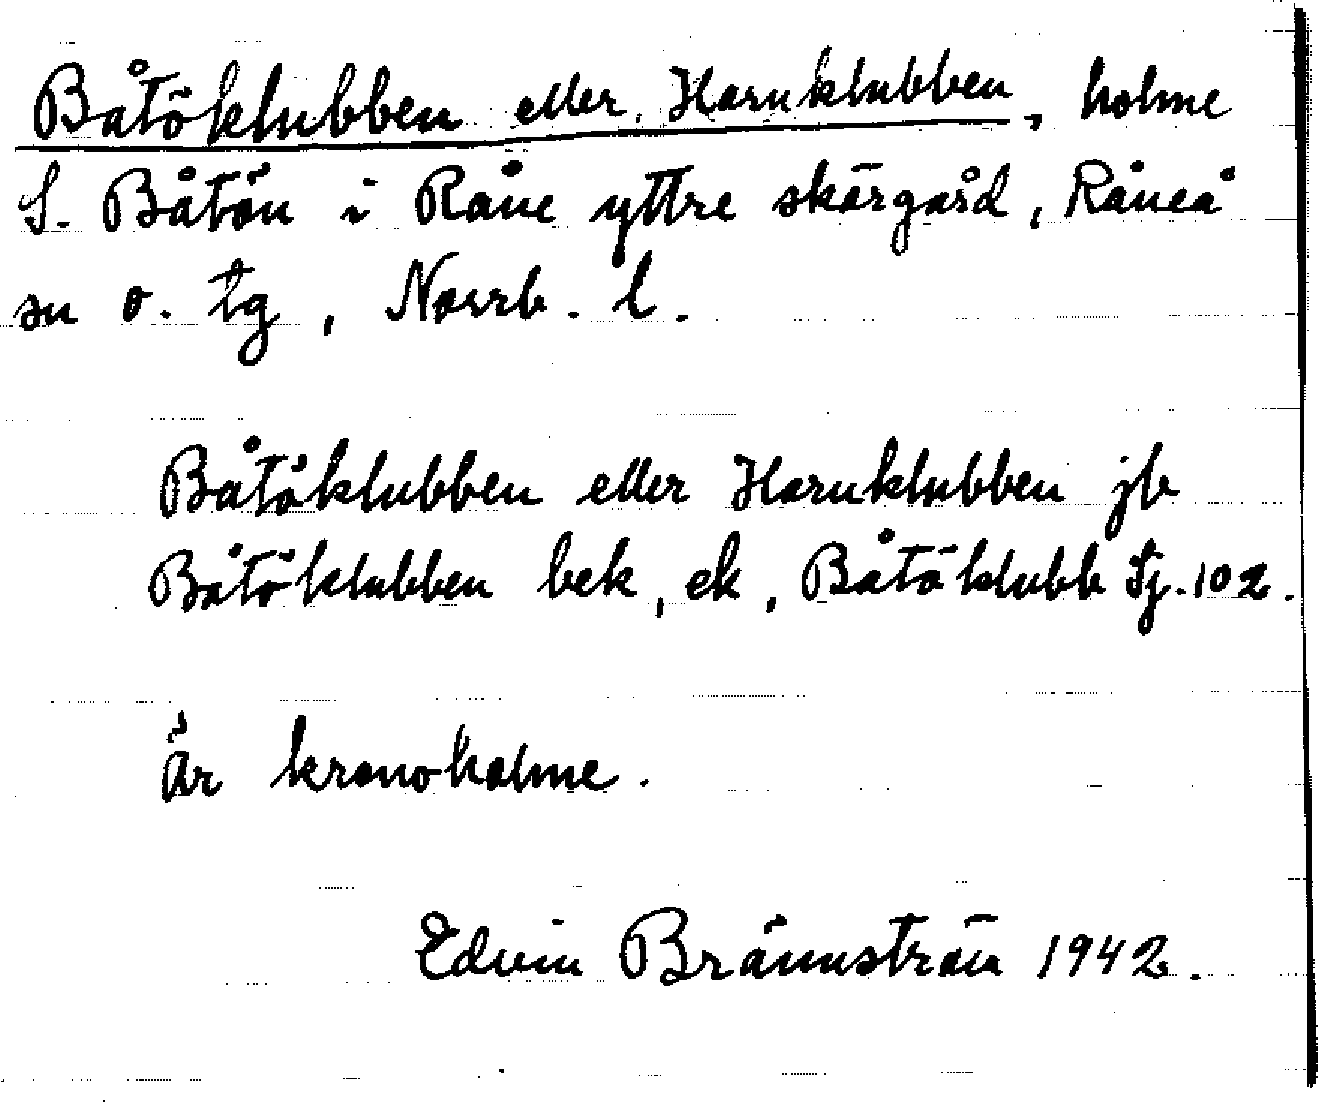 Båtöklubben eller Haruklubben, holme
S. Båtön i Råne yttre skärgård, Råneå
sn o. tg, Norrb. l.
Båtöklubben eller Haruklubben jb
Båtöklubben bek, ek, Båtöklubb Sj. 102.
Är kronoholme.
Edvin Brännström 1942.